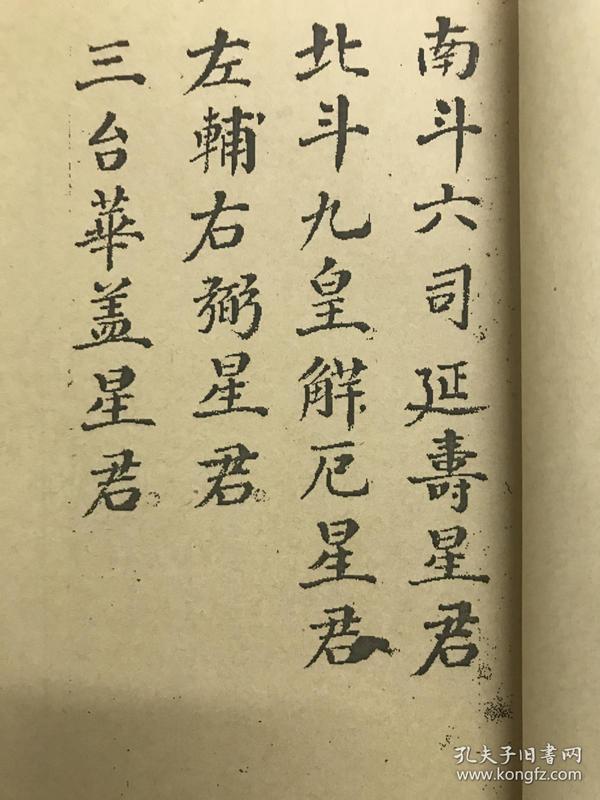 南斗六司延壽星君
北斗九皇解厄星君
左輔右弼星君
三台華盖星君
孔夫子旧書网
www.kongfz.com